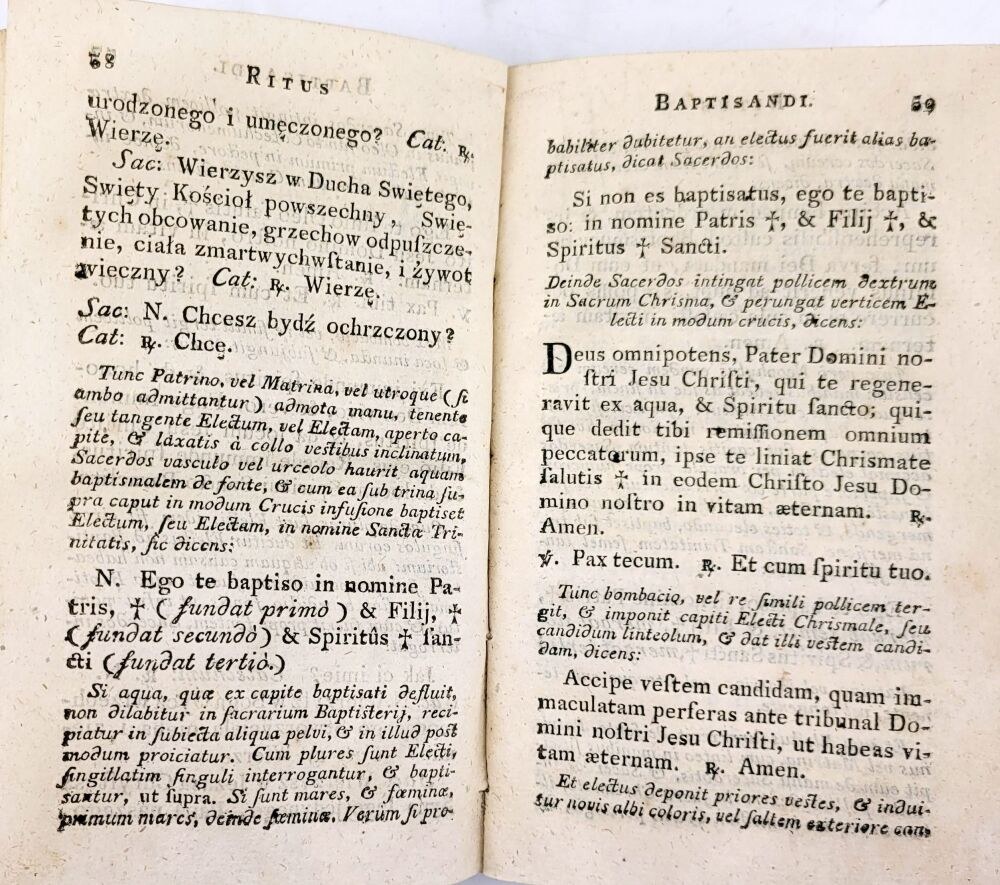 58
RITUS
urodzonego i umęczonego? Cat: ℟.
Wierzę.
Sac: Wierzysz w Ducha Swiętego,
Swięty Kościoł powszechny, Swię-
tych obcowanie, grzechow odpuſzcze-
nie, ciała zmartwychwſtanie, i żywot
wieczny? Cat: ℟. Wierzę.
Sac: N. Chcesz bydź ochrzczony?
Cat: ℟. Chcę.
Tunc Patrino, vel Matrina, vel utroque (ſi
ambo admittantur) admota manu, tenente
ſeu tangente Electum, vel Electam, aperto ca-
pite, & laxatis à collo veſtibus inclinatum,
Sacerdos vasculo vel urceolo haurit aquam
baptismalem de fonte, & cum ea ſub trina ſu-
pra caput in modum Crucis infuſione baptiset
Electum, ſeu Electam, in nomine Sanctæ Tri-
nitatis, ſic dicens:
N. Ego te baptiso in nomine Pa-
tris, ✝ (fundat primò) & Filij, ✝
(fundat secundò) & Spiritûs ✝ ſan-
cti (fundat tertiò.)
Si aqua, quæ ex capite baptisati defluit,
non dilabitur in ſacrarium Baptiſterij, reci-
piatur in ſubiecta aliqua pelvi, & in illud poſt
modum proiciatur. Cum plures ſunt Electi,
ſingillatim ſinguli interrogantur, & bapti-
santur, ut ſupra. Si ſunt mares, & fœminæ,
primum mares, deinde fœminæ. Verum ſi pro-
BAPTISANDI.
59
babiliter dubitetur, an electus fuerit alias ba-
ptisatus, dicat Sacerdos:
Si non es baptisatus, ego te bapti-
so: in nomine Patris ✝, & Filij ✝, &
Spiritus ✝ Sancti.
Deinde Sacerdos intingat pollicem dextrum
in Sacrum Chrisma, & perungat verticem E-
lecti in modum crucis, dicens:
Deus omnipotens, Pater Domini no-
ſtri Jesu Chriſti, qui te regene-
ravit ex aqua, & Spiritu ſancto; qui-
que dedit tibi remiſſionem omnium
peccatorum, ipse te liniat Chrismate
ſalutis ✝ in eodem Chriſto Jesu Do-
mino noſtro in vitam æternam. ℟.
Amen.
℣. Pax tecum. ℟. Et cum ſpiritu tuo.
Tunc bombacio, vel re ſimili pollicem ter-
git, & imponit capiti Electi Chrismale, ſeu
candidum linteolum, & dat illi veſtem candi-
dam, dicens:
Accipe veſtem candidam, quam im-
maculatam perferas ante tribunal Do-
mini noſtri Jesu Chriſti, ut habeas vi-
tam æternam. ℟. Amen.
Et electus deponit priores veſtes, & indui-
tur novis albi coloris, vel ſaltem exteriore can-